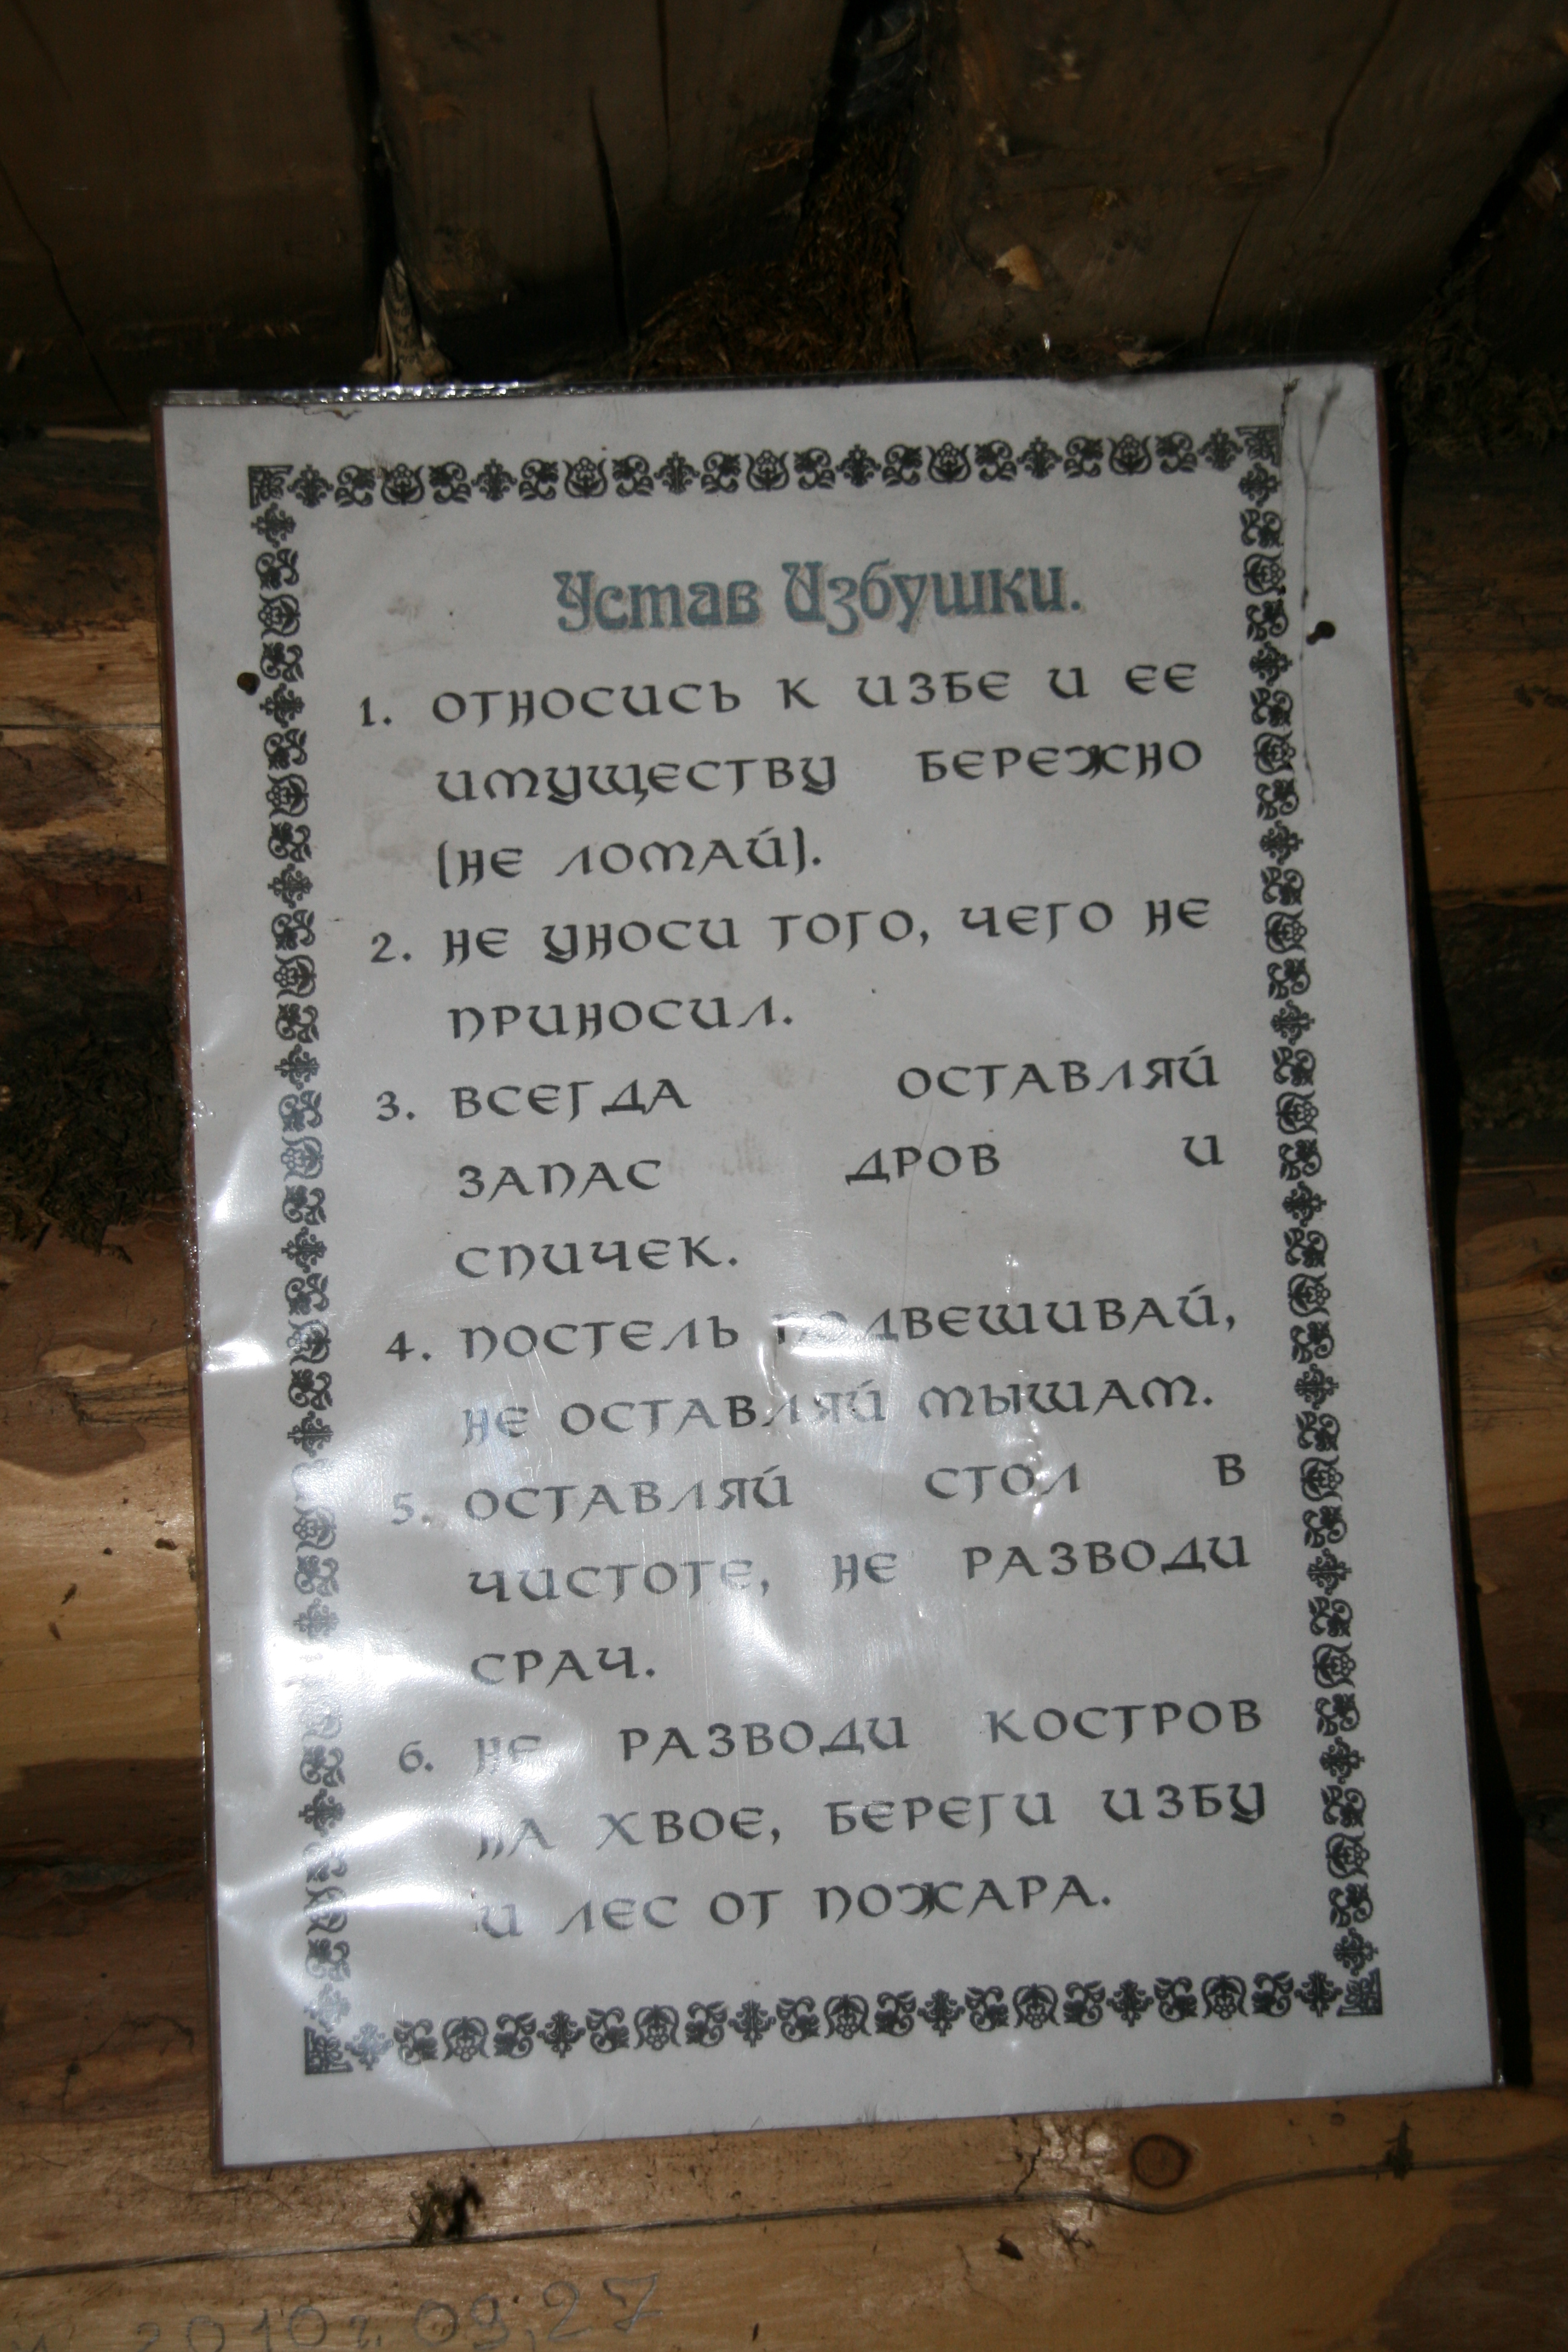 Устав Избушки.
1. ОТНОСИСЬ К ИЗБЕ И ЕЕ
ИМУЩЕСТВУ БЕРЕЖНО
(НЕ ЛОМАЙ).
2. НЕ УНОСИ ТОГО, ЧЕГО НЕ
ПРИНОСИЛ.
3. ВСЕГДА ОСТАВЛЯЙ
ЗАПАС ДРОВ И
СПИЧЕК.
4. ПОСТЕЛЬ ПОДВЕШИВАЙ,
НЕ ОСТАВЛЯЙ МЫШАМ.
5. ОСТАВЛЯЙ СТОЛ В
ЧИСТОТЕ, НЕ РАЗВОДИ
СРАЧ.
6. НЕ РАЗВОДИ КОСТРОВ
НА ХВОЕ, БЕРЕГИ ИЗБУ
И ЛЕС ОТ ПОЖАРА.
2010г. 09,27